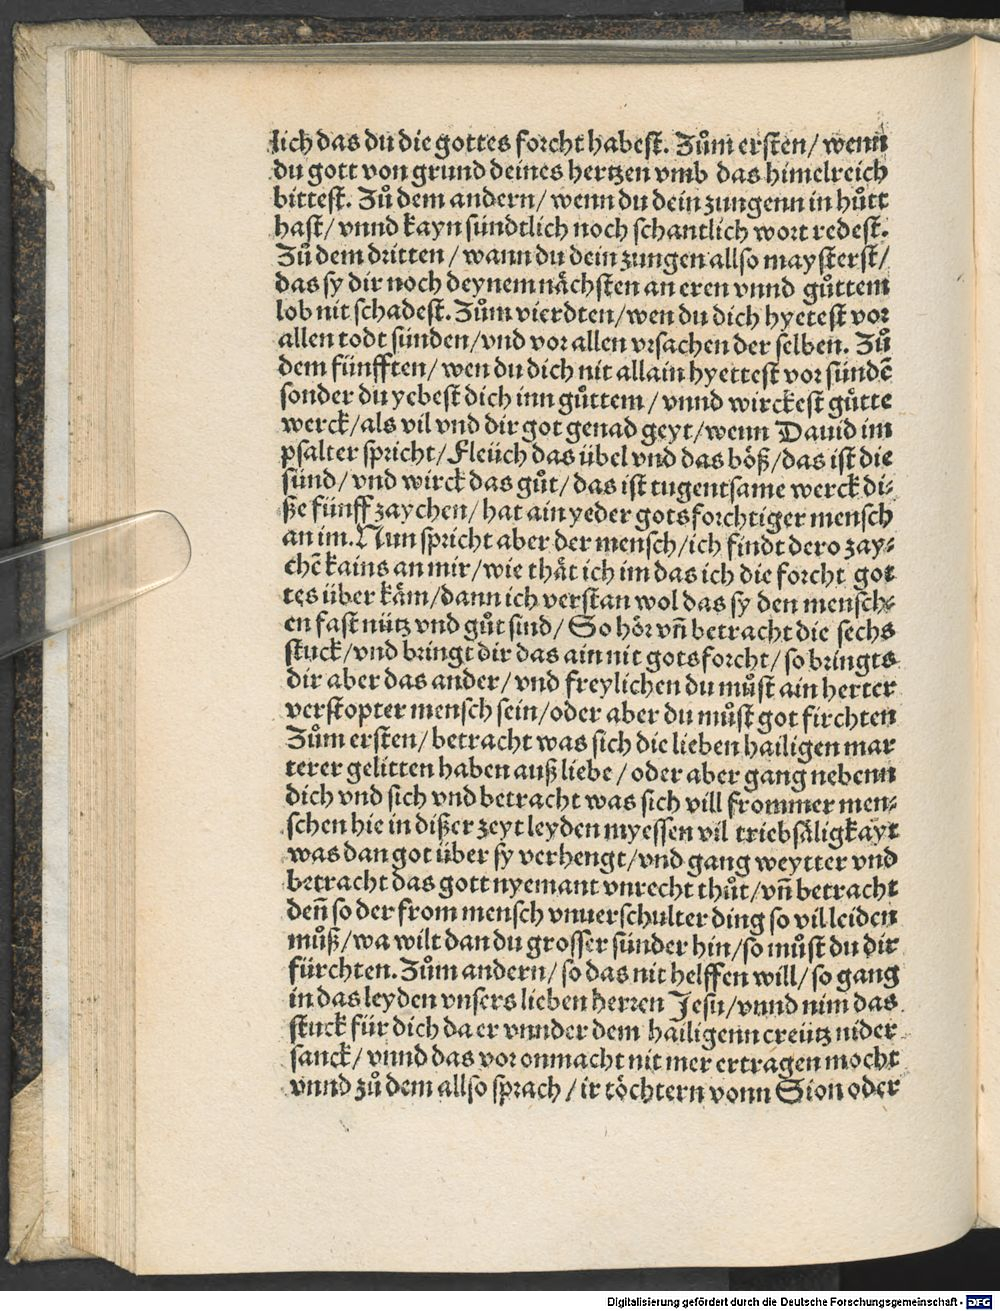 lich das du die gottes forcht habest. Zům ersten/ wenn
du gott von grund deines hertzen vmb das himelreich
bittest. Zů dem andern/ wenn du dein zungenn in hůtt
hast/ vnnd kayn sündtlich noch schantlich wort redest.
Zů dem dritten/ wann du dein zungen allso maysterst/
das sy dir noch deynem nächsten an eren vnnd gůttem
lob nit schadest. Zům vierdten/ wen du dich hyetest vor
allen todt sünden/ vnd vor allen vrsachen der selben. Zů
dem fünfften/ wen du dich nit allain hyettest vor sündē
sonder du yebest dich inn gůttem/ vnnd wirckest gůtte
werck/ als vil vnd dir got genad geyt/ wenn Dauid im
psalter spricht/ Fleüch das übel vnd das böß/ das ist die
sünd/ vnd wirck das gůt/ das ist tugentsame werck di⸗
ße fünff zaychen/ hat ain yeder gotsforchtiger mensch
an im. Nun spricht aber der mensch/ ich findt dero zay⸗
chē kains an mir/ wie thät ich im das ich die forcht got
tes über käm/ dann ich verstan wol das sy den mensch⸗
en fast nütz vnd gůt sind/ So hör vn̄ betracht die sechs
stuck/ vnd bringt dir das ain nit gotsforcht/ so bringts
dir aber das ander/ vnd freylichen du můst ain herter
verstopter mensch sein/ oder aber du můst got firchten
Zům ersten/ betracht was sich die lieben hailigen mar
terer gelitten haben auß liebe/ oder aber gang nebenn
dich vnd sich vnd betracht was sich vill frommer men⸗
schen hie in dißer zeyt leyden myessen vil triebsäligkayt
was dan got über sy verhengt/ vnd gang weytter vnd
betracht das gott nyemant vnrecht thůt/ vn̄ betracht
den̄ so der from mensch vnuerschulter ding so vil leiden
můß/ wa wilt dan du grosser sünder hin/ so můst du dir
fürchten. Zům andern/ so das nit helffen will/ so gang
in das leyden vnsers lieben herren Jesu/ vnnd nim das
stuck für dich da er vnnder dem hailigenn creütz nider
sanck/ vnnd das vor onmacht nit mer ertragen mocht
vnnd zů dem allso sprach/ ir töchtern vonn Sion oder
Digitalisierung gefördert durch die Deutsche Forschungsgemeinschaft - DFG